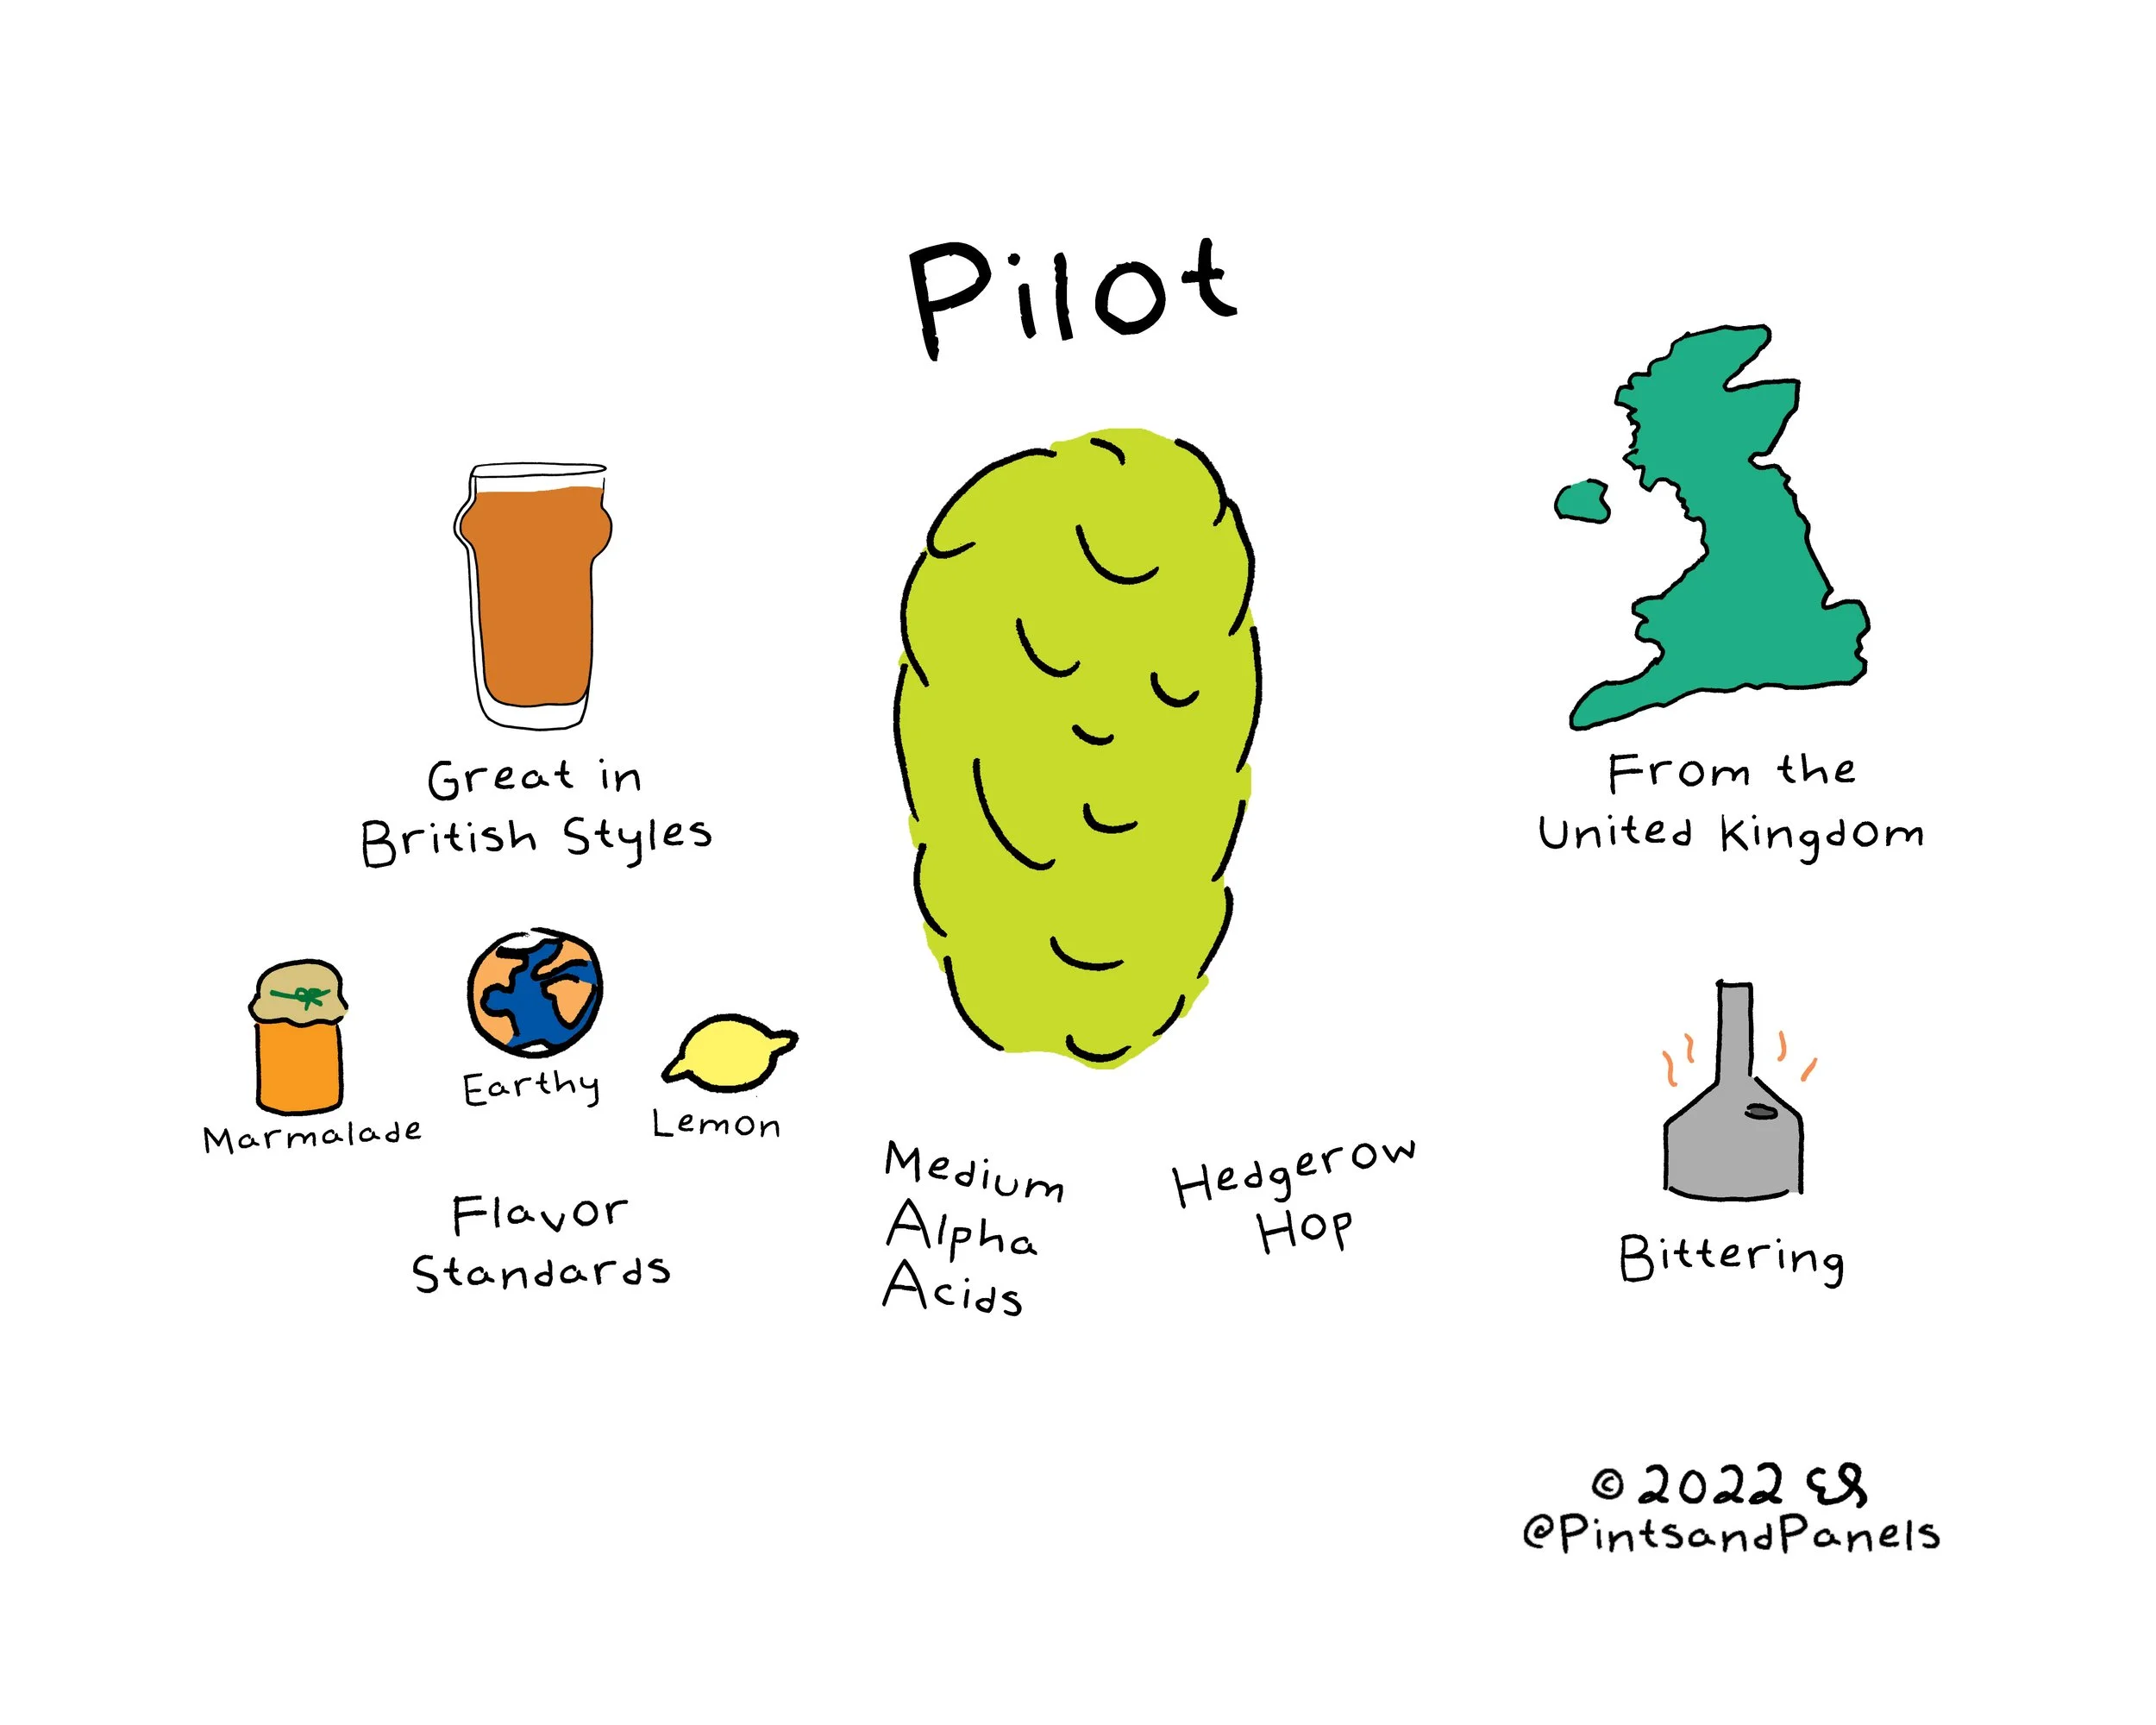 Pilot
Great in
British Styles
From the
United Kingdom
Marmalade
Earthy
Lemon
Flavor
Standards
Medium
Alpha
Acids
Hedgerow
Hop
Bittering
© 2022
@PintsandPanels